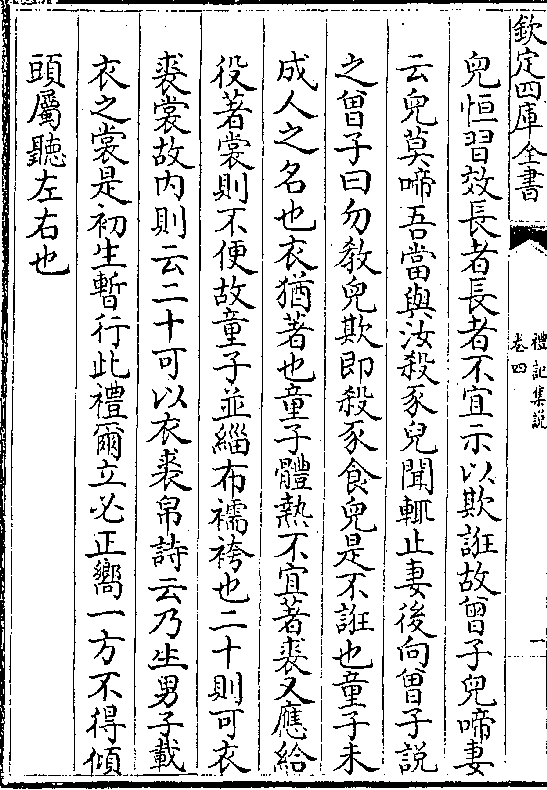 欽定四庫全書
禮記集說
卷四
一
兒恒習效長者長者不宜示以欺誑故曾子兒啼妻
云兒莫啼吾當與汝殺豕兒聞輒止妻後向曾子說
之曾子曰勿教兒欺即殺豕食兒是不誑也童子未
成人之名也衣猶著也童子體熱不宜著裘又應給
役著裳則不便故童子並緇布襦袴也二十則可衣
裘裳故内則云二十可以衣裘帛詩云乃生男子載
衣之裳是初生暫行此禮爾立必正嚮一方不得傾
頭屬聽左右也